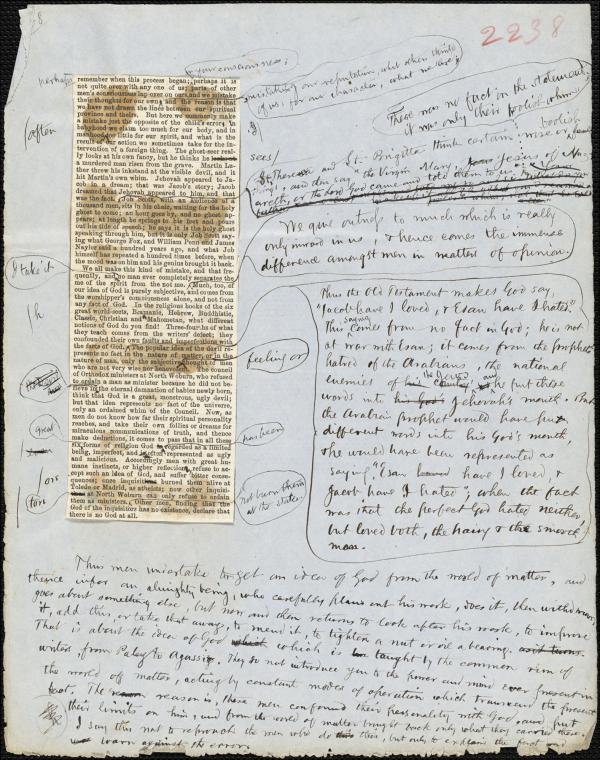 2238
in your consciousness;
mistaking our reputation, what others think
of us, for our character, what we are;
There was no fact in the statement,
it was only their foolish whim
perhaps
remember when this process began; perhaps it is
not quite over with any one of us; parts of other
men's consciousness lap over on ours, and we mistake
their thoughts for our own; and the reason is that
we have not drawn the lines between our spiritual
province and theirs. But here we commonly make
a mistake just the opposite of the child's error. In
babyhood we claim too much for our body, and in
manhood too little for our spirit, and what is the
result of our action we sometimes take for the inter-
vention of a foreign thing. The ghost-seer real-
ly looks at his own fancy, but he thinks he
a murdered man risen from the grave. Martin Lu-
ther threw his inkstand at the visible devil, and in
his Martin's own whim. Jehovah appeared to Ja-
cob in a dream; that was Jacob's story; Jacob
dreamed that Jehovah appeared to him, and that
was the fact. Job Scott, with an audience of a
thousand men, sits in his chair, waiting for the holy
ghost to come; an hour goes by, and no ghost ap-
pears; at length he springs to his feet and pours
out his tide of speech; he says it is the holy ghost
speaking through him, but it is only Job Scott say-
ing what George Fox, and William Penn and James
Naylor said a hundred years ago, and what Job
himself has repeated a hundred times before, when
the mood was on him and his genius brought it back.
We all make this kind of mistake, and that fre-
quently, and no man ever completely separates the
me of the spirit from the not me. Much, too, of
our idea of God is purely subjective, and comes from
the worshipper's consciousness alone, and not from
any fact of God. In the religious books of the six
great world-sects, Bramanic, Hebrew, Buddhistic,
Classic, Christian and Mahometan, what different
notions of God do you find! Three-fourths of what
they teach comes from the writers' defect; they
confounded their own faults and imperfections with
the facts of God. The popular idea of the devil re-
presents no fact in the nature of matter, or in the
nature of man, only the subjective thought of men
who are not very wise nor benevolent. The council
of Orthodox ministers at North Woburn, who refused
to ordain a man as minister because he did not be-
lieve in the eternal damnation of babies newly born,
think that God is a great, monstrous, ugly devil;
but that idea represents no fact of the universe,
only an ordained whim of the Council. Now, as
men do not know how far their spiritual personality
reaches, and take their own follies or dreams for
miraculous communications of truth, and thence
make deductions, it comes to pass that in all these
six forms of religion God is regarded as a limited
being, imperfect, and is often represented as ugly
and malicious. Accordingly men with great hu-
mane instincts, or higher reflection, refuse to ac-
cept such an idea of God, and suffer bitter conse-
quences; once inquisitors burned them alive at
Toledo or Madrid, as atheists; now other inquisi-
tors at North Woburn can only refuse to ordain
them as ministers. Other men, finding that the
God of the inquisitors has no existence, declare that
there is no God at all.
often
I take it
th
Great
ors
tors
feeling or
has been
not burn them
at the stake
sees/
St. Theresa and St. Brigitta think certain wise or foolish
things, and then say "the Virgin Mary, Jesus of Naz-
areth, or the Lord God came and told them to us."
We give outwardly to much which is really
only inward in us, & hence comes the immense
difference amongst men in matters of opinion.
Thus the Old Testament makes God say,
"Jacob have I loved, & Esau have I hated."
This saying comes from no fact in God; he is not
at war with Esau; it comes from the prophet's
hatred of the Arabians, the national
enemies of the Jews; and he put these
words into Jehovah's mouth. That
the Arabian prophet would have put
different words into his God's mouth,
he would have been represented as
saying "Esau have I loved,
Jacob have I hated"; when the fact
was that the perfect God hated neither,
but loved both, the hairy & the smooth
man.
Thus men undertake to get an idea of God from the world of matter, and
thence infer an almighty being, who carefully plans out his work, does it, then withdraws,
goes about something else, but now and then returns to look after his work, to improve
it, add this, or take that away, to mend it, to tighten a nut or oil a bearing.
That is about the idea of God which is taught by the common run of
writers, from Paley to Agassiz. They do not introduce you to the power and mind ever present in
the world of matter, acting by constant modes of operation which transcend the present
fact. The reason is, these men confound their personality with God, and put
their limits on him, and from the world of matter brought back only what they carried there.
I say this not to reproach the men who do this, but only to explain the fact and
warn against the error.